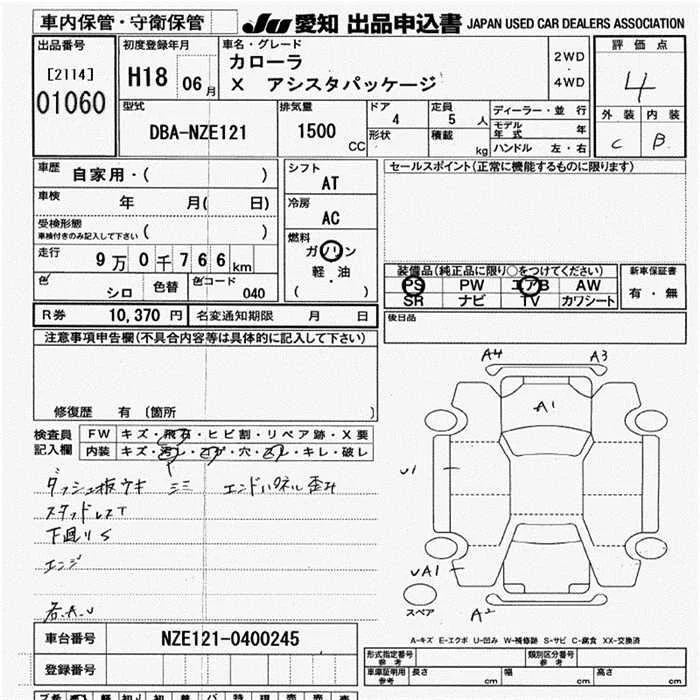 車内保管・守衛保管
JU 愛知 出品申込書 JAPAN USED CAR DEALERS ASSOCIATION
出品番号
[2114]
01060
初度登録年月
H18 06 月
車名・グレード
カローラ
X アシスタパッケージ
2WD
・
4WD
評価点
4
外装 内装
C B
型式
DBA-NZE121
排気量
1500
CC
ドア
4
定員
5 人
形状
積載
kg
ディーラー・並行
モデル年式 年
ハンドル 左・右
車歴
自家用・( )
車検
年 月( 日)
受検形態
車検付きのみ記入して下さい ( )
走行
9万0千766km
色
シロ
色替
色コード
040
シフト
AT
冷房
AC
燃料
ガソリン
軽・油
( )
セールスポイント(正常に機能するものに限ります)
装備品(純正品に限り○をつけてください)
PS PW エアB AW
SR ナビ TV カワシート
新車保証書
有・無
R券 10,370 円
名変通知期限 月 日
後日品
注意事項申告欄(不具合内容等は具体的に記入して下さい)
修復歴 有 〔箇所 〕
検査員
記入欄
FW キズ・飛石・ヒビ割・リペア跡・X要
内装 キズ・汚レ・コゲ・穴・スレ・キレ・破レ
ダッシュ板ウキ
エンドパネル歪み
スタッドレスT
下廻りS
エンジ
A4 A3
A1
U1
UA1
A2
スペア
A-キズ E-エクボ U-凹み W-補修跡 S-サビ C-腐食 XX-交換済
車台番号
NZE121-0400245
登録番号
形式指定番号
参考
類別区分番号
参考
車庫証明用
参考
長さ cm
幅 cm
高さ cm